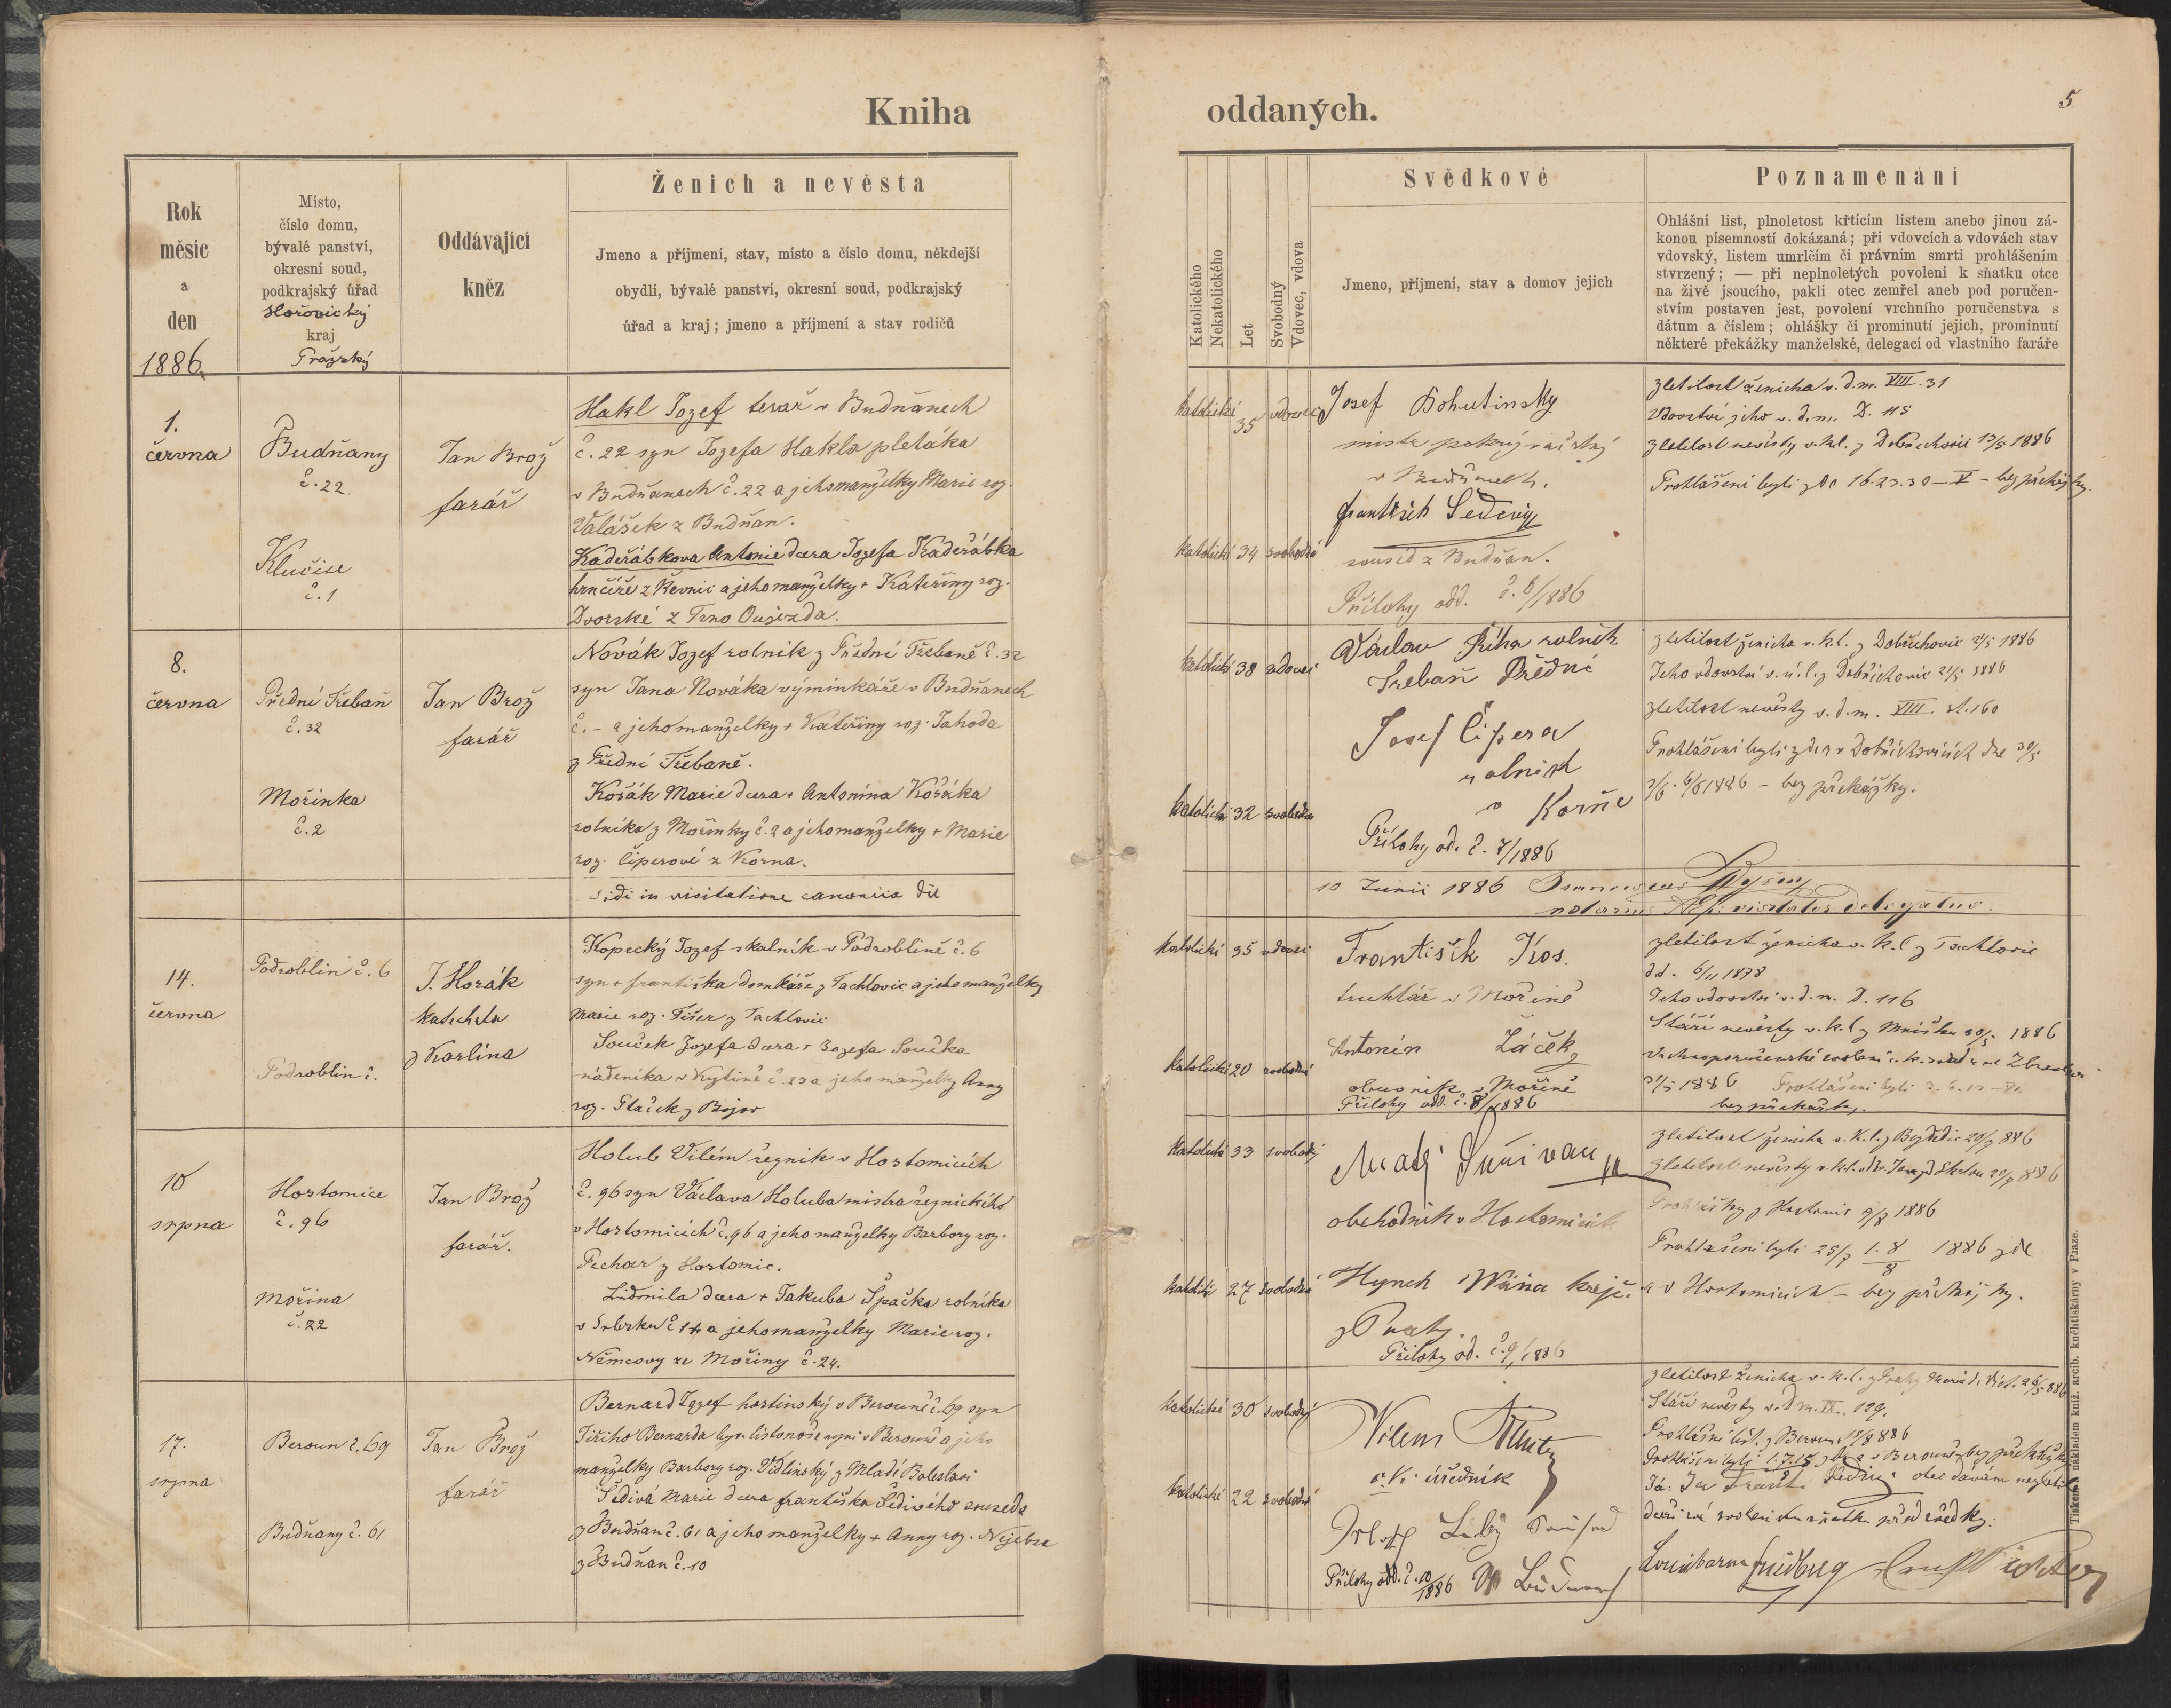 Kniha
oddaných.
5
Rok
měsíc
a
den
1886.
Místo,
číslo domu,
bývalé panství,
okresní soud,
podkrajský úřad
Hořovický
kraj
Pražský
Oddávající
kněz
Ženich a nevěsta
Jmeno a příjmení, stav, místo a číslo domu, někdejší
obydlí, bývalé panství, okresní soud, podkrajský
úřad a kraj; jmeno a příjmení a stav rodičů
Katolického
Nekatolického
Let
Svobodný
Vdovec, vdova
Svědkové
Jmeno, příjmení, stav a domov jejich
Poznamenání
Ohlášní list, plnoletost křtícím listem anebo jinou zá-
konou písemností dokázaná; při vdovcích a vdovách stav
vdovský, listem umrlčím či právním smrti prohlášením
stvrzený; — při neplnoletých povolení k sňatku otce
na živě jsoucího, pakli otec zemřel aneb pod poručen-
stvím postaven jest, povolení vrchního poručenstva s
dátum a číslem; ohlášky či prominutí jejich, prominutí
některé překážky manželské, delegací od vlastního faráře
1.
června
Budňany
č. 22
Klučice
č. 1
Jan Brož
farář
Hakl Jozef tesař v Budňanech
č. 22 syn Jozefa Hakla pletáka
v Budňanech č. 22 a jeho manželky Marie roz.
Valášek z Budňan.
Kadeřábkova Antonie dcera Jozefa Kadeřábka
hrnčíře z Řevnic a jeho manželky + Kateřiny roz.
Dvorské z Trno Oujezda.
katolické 35 vdovec
katolické 34 svobodná
Josef Bohutinský
mistr pokrývačský
v Budňanech.
František Šedivý
soused z Budňan.
Přílohy odd. č. 6/1886
zletilost ženicha v. d. m. VIII. 31
Vdovství jeho v. d. m. D. 115
zletilost nevěsty v. k. l. z Dobřichovic 13/5 1886
Prohlášeni byli zde 16. 23. 30 – V – bez překážky.
8.
června
Přední Třebaň
č. 32
Mořinka
č. 2
Jan Brož
farář
Novák Jozef rolník z Přední Třebaně č. 32
syn Jana Nováka výminkáře v Budňanech
č. – a jeho manželky + Kateřiny roz. Jahoda
z Přední Třebaně.
Kořák Marie dcera + Antonína Kořáka
rolníka z Mořinky č. 2 a jeho manželky + Marie
roz. Čiperové z Korna.
katolické 38 vdovec
katolické 32 svobodna
Václav Říha rolník
Třebaň Přední
Josef Čipera
rolník
v Korně
Přílohy od. č. 7/1886
zletilost ženicha v. k. l. z Dobřichovic 21/5 1886
Jeho vdovství v. ú. l. z Dobřichovic 21/5 1886
zletilost nevěsty v. d. m. VIII. st. 160
Prohlášeni byli zde a v Dobřichovicích dne 30/5
3/6. 6/6 1886 – bez překážky.
Vidi in visitatione canonica die
10 Junii 1886
notarius visitator delegatus.
14.
června
Podroblin č. 6
Podroblin č.
J. Horák
katecheta
z Karlina
Kopecký Jozef skalník v Podroblině č. 6
syn + františka domkáře z Tachlovic a jeho manželky
Marie roz. Fišer z Tachlovic
Souček Jozefa dcera + Jozefa Součka
nádeníka v Kytíně č. 23 a jeho manželky Anny
roz. Ptaček z Bojov
katolické 35 vdovec
katolické 20 svobodná
František Kos.
truhlář v Mořině
Antonín Žáček
obuvník v Mořině
Přílohy odd. č. 8/1886
zletilost ženicha v. k. l. z Tachlovic
dd. 6/11 1878
Jeho vdovství v. d. m. D. 116
Stáří nevěsty v. k. l. z Mníšku 30/5 1886
31/5 1886 Prohlášeni byli
bez překážky.
10
srpna
Hostomice
č. 96
Mořina
č. 22
Jan Brož
farář.
Holub Vilém řezník v Hostomicích
č. 96 syn Václava Holuba mistra řeznického
v Hostomicích č. 96 a jeho manželky Barbory roz.
Pechar z Hostomic.
Lidmila dcera + Jakuba Špačka rolníka
v Srbsku č 14 a jeho manželky Marie roz.
Němcovy ze Mořiny č. 24.
katolické 33 svobodný
katolické 27 svobodná
obchodník v Hostomicích
Hynek Wána krejčí
z Prahy.
Přílohy od. č. 9/1886
zletilost ženicha v. k. l. z 20/7 886
zletilost nevěsty v. k. l.
Prohlášky z Hostomic 9/8 1886
Prohlášeni byli 25/7 1. 8/8 1886 zde
a v Hostomicích – bez překážky.
17.
srpna
Beroun č. 69
Budňany č. 61
Jan Brož
farář
Bernard Jozef hostinský v Berouně č. 69 syn
Jiřího Bernarda byv. listonoše nyní v Berouně a jeho
manželky Barbory roz. Vidlinský z Mladé Boleslavi
Šedivá Marie dcera františka Šedivého souseda
z Budňan č. 61 a jeho manželky + Anny roz. Nejebza
z Budňan č. 10
katolické 30 svobodný
katolické 22 svobodná
Vilem
c. k. úředník
Přílohy odd. č. 10/1886
zletilost ženicha v. k. l. z Prahy
Stáří nevěsty v. d. m. IX. 129.
Prohlášní list. z Beroun 15/8 886
Prohlášeni byli 1. 7. 15/8 zde a v Berouně bez překážky
otec dávám nezletilé
dceři své svolení ku sňatku před svědky:
Tiskem a nákladem kníž. arcib. kněhtiskárny v Praze.